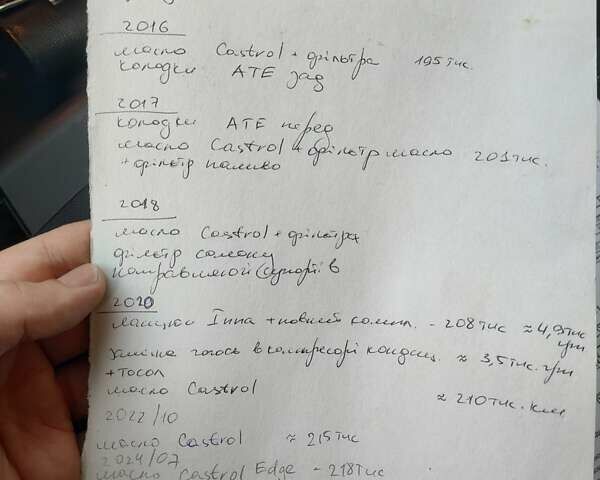 2016
масло Castrol + фільтра 195 тис.
колодки ATE зад
2017
колодки ATE перед
масло Castrol + фільтр масло 201 тис.
+ фільтр паливо
2018
масло Castrol + фільтра
фільтр салону
направляючі супорів
2020
ланцюг Іппа + повний компл. - 208 тис ≈ 4,9 тис
грн
заміна чогось в компресорі кондиц. ≈ 3,5 тис. грн
+ тосол
масло Castrol ≈ 210 тис. км
2022/10
масло Castrol ≈ 215 тис
2024/07
масло Castrol Edge - 218 тис